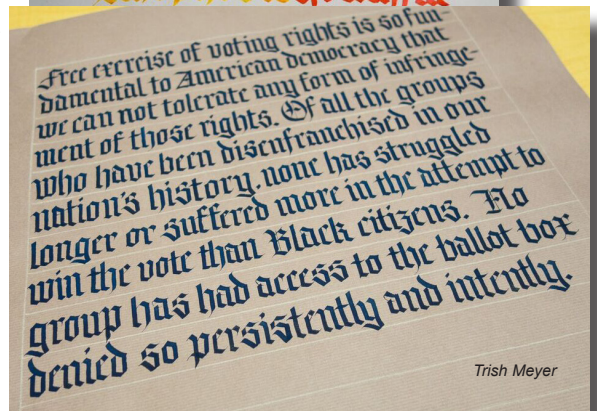 Free exercise of voting rights is so fun-
damental to American democracy that
we can not tolerate any form of infringe-
ment of those rights. Of all the groups
who have been disenfranchised in our
nation's history, none has struggled
longer or suffered more in the attempt to
win the vote than Black citizens. No
group has had access to the ballot box
denied so persistently and intently.
Trish Meyer